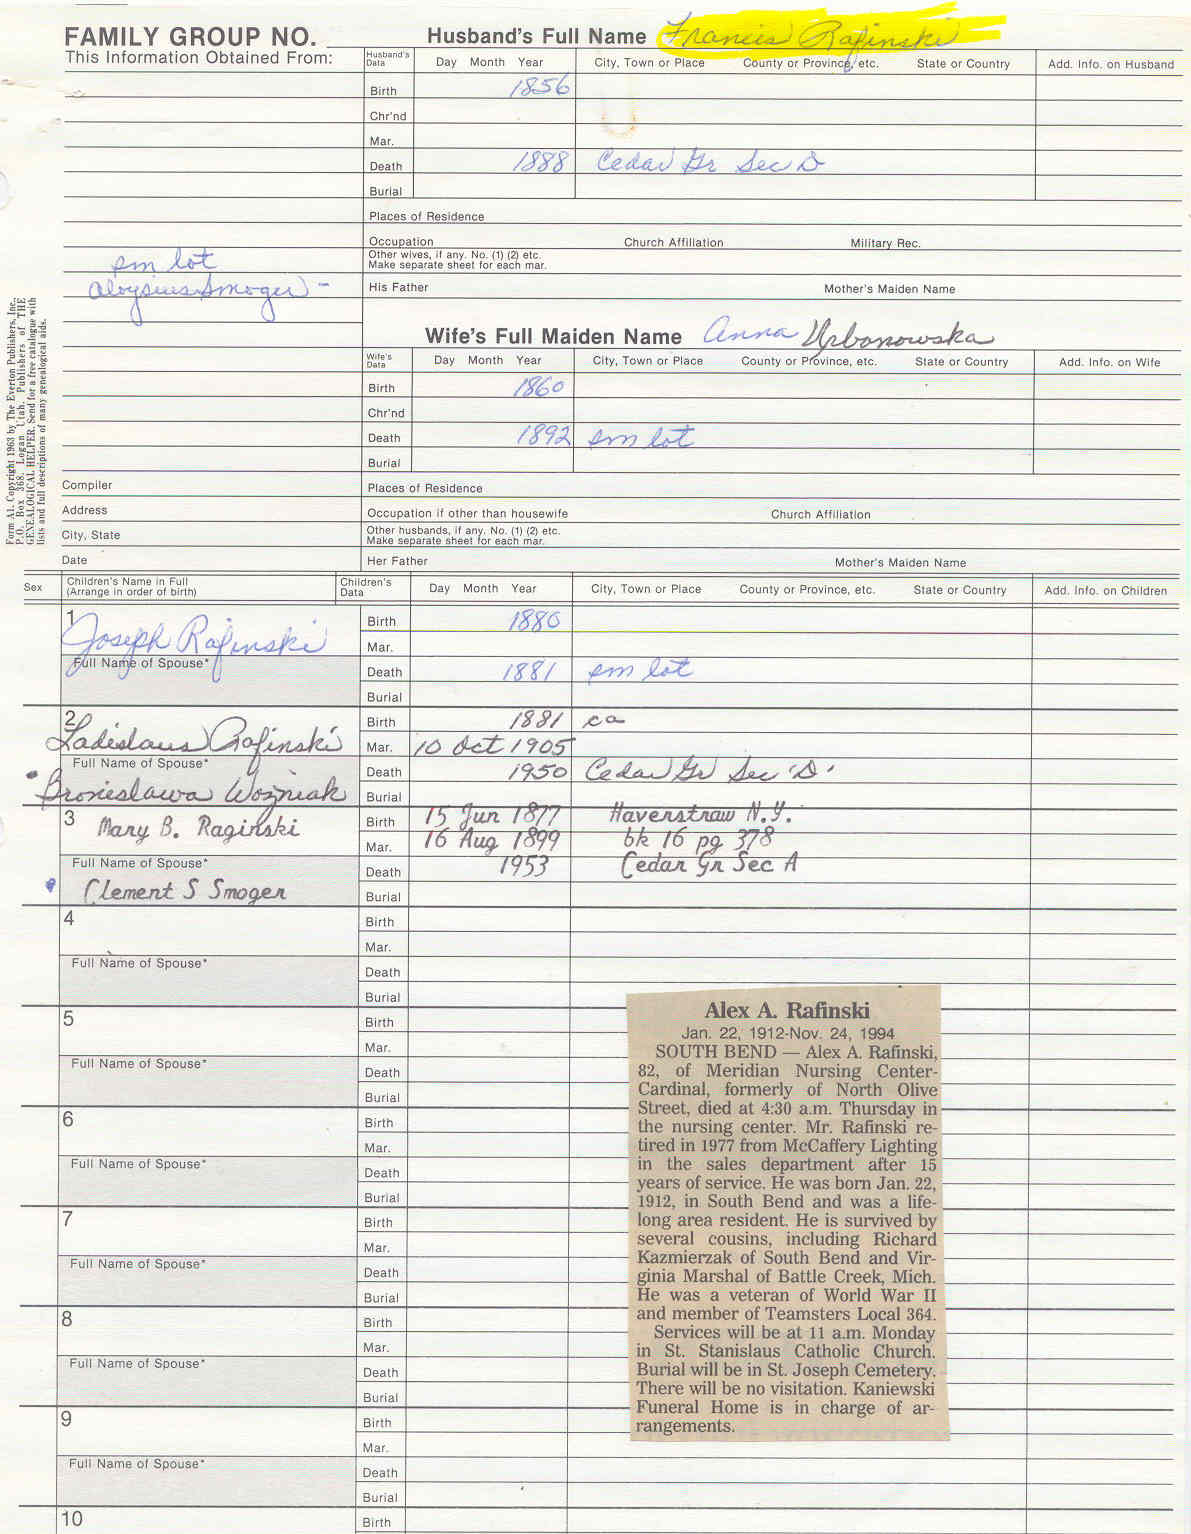 FAMILY GROUP NO.
Husband's Full Name Francis Rafinski
This Information Obtained From:
Husband's Data Day Month Year City, Town or Place County or Province, etc. State or Country Add. Info. on Husband
Birth 1856
Chr'nd
Mar.
Death 1888 Cedar Gr Sec D
Burial
Places of Residence
Occupation Church Affiliation Military Rec.
Other wives, if any. No. (1) (2) etc.
Make separate sheet for each mar.
His Father Mother's Maiden Name
sm lot
Aloysius Smoger -
Form A1. Copyright 1963 by The Everton Publishers, Inc.,
P.O. Box 368, Logan, Utah. Publishers of THE
GENEALOGICAL HELPER. Send for a free catalogue with
lists and full descriptions of many genealogical aids.
Wife's Full Maiden Name Anna Urbanowska
Wife's Data Day Month Year City, Town or Place County or Province, etc. State or Country Add. Info. on Wife
Birth 1860
Chr'nd
Death 1892 sm lot
Burial
Compiler Places of Residence
Address Occupation if other than housewife Church Affiliation
City, State Other husbands, if any. No. (1) (2) etc.
Make separate sheet for each mar.
Date Her Father Mother's Maiden Name
Sex Children's Name in Full
(Arrange in order of birth)
Children's Data Day Month Year City, Town or Place County or Province, etc. State or Country Add. Info. on Children
1 Birth 1880
Joseph Rafinski Mar.
Full Name of Spouse* Death 1881 sm lot
Burial
2 Birth 1881 ca
Ladislaus Rafinski Mar. 10 Oct 1905
Full Name of Spouse* Death 1950 Cedar Gr Sec 'D'
Bronislawa Woźniak Burial
3 Mary B. Raginski Birth 15 Jun 1877 Haverstraw N.Y.
Mar. 16 Aug 1899 bk 16 pg 378
Full Name of Spouse* Death 1953 Cedar Gr Sec A
Clement S Smoger Burial
4 Birth
Mar.
Full Name of Spouse* Death
Burial
5 Birth
Mar.
Full Name of Spouse* Death
Burial
6 Birth
Mar.
Full Name of Spouse* Death
Burial
7 Birth
Mar.
Full Name of Spouse* Death
Burial
8 Birth
Mar.
Full Name of Spouse* Death
Burial
9 Birth
Mar.
Full Name of Spouse* Death
Burial
10 Birth
Alex A. Rafinski
Jan. 22, 1912-Nov. 24, 1994
SOUTH BEND — Alex A. Rafinski,
82, of Meridian Nursing Center-
Cardinal, formerly of North Olive
Street, died at 4:30 a.m. Thursday in
the nursing center. Mr. Rafinski re-
tired in 1977 from McCaffery Lighting
in the sales department after 15
years of service. He was born Jan. 22,
1912, in South Bend and was a life-
long area resident. He is survived by
several cousins, including Richard
Kazmierzak of South Bend and Vir-
ginia Marshal of Battle Creek, Mich.
He was a veteran of World War II
and member of Teamsters Local 364.
Services will be at 11 a.m. Monday
in St. Stanislaus Catholic Church.
Burial will be in St. Joseph Cemetery.
There will be no visitation. Kaniewski
Funeral Home is in charge of ar-
rangements.